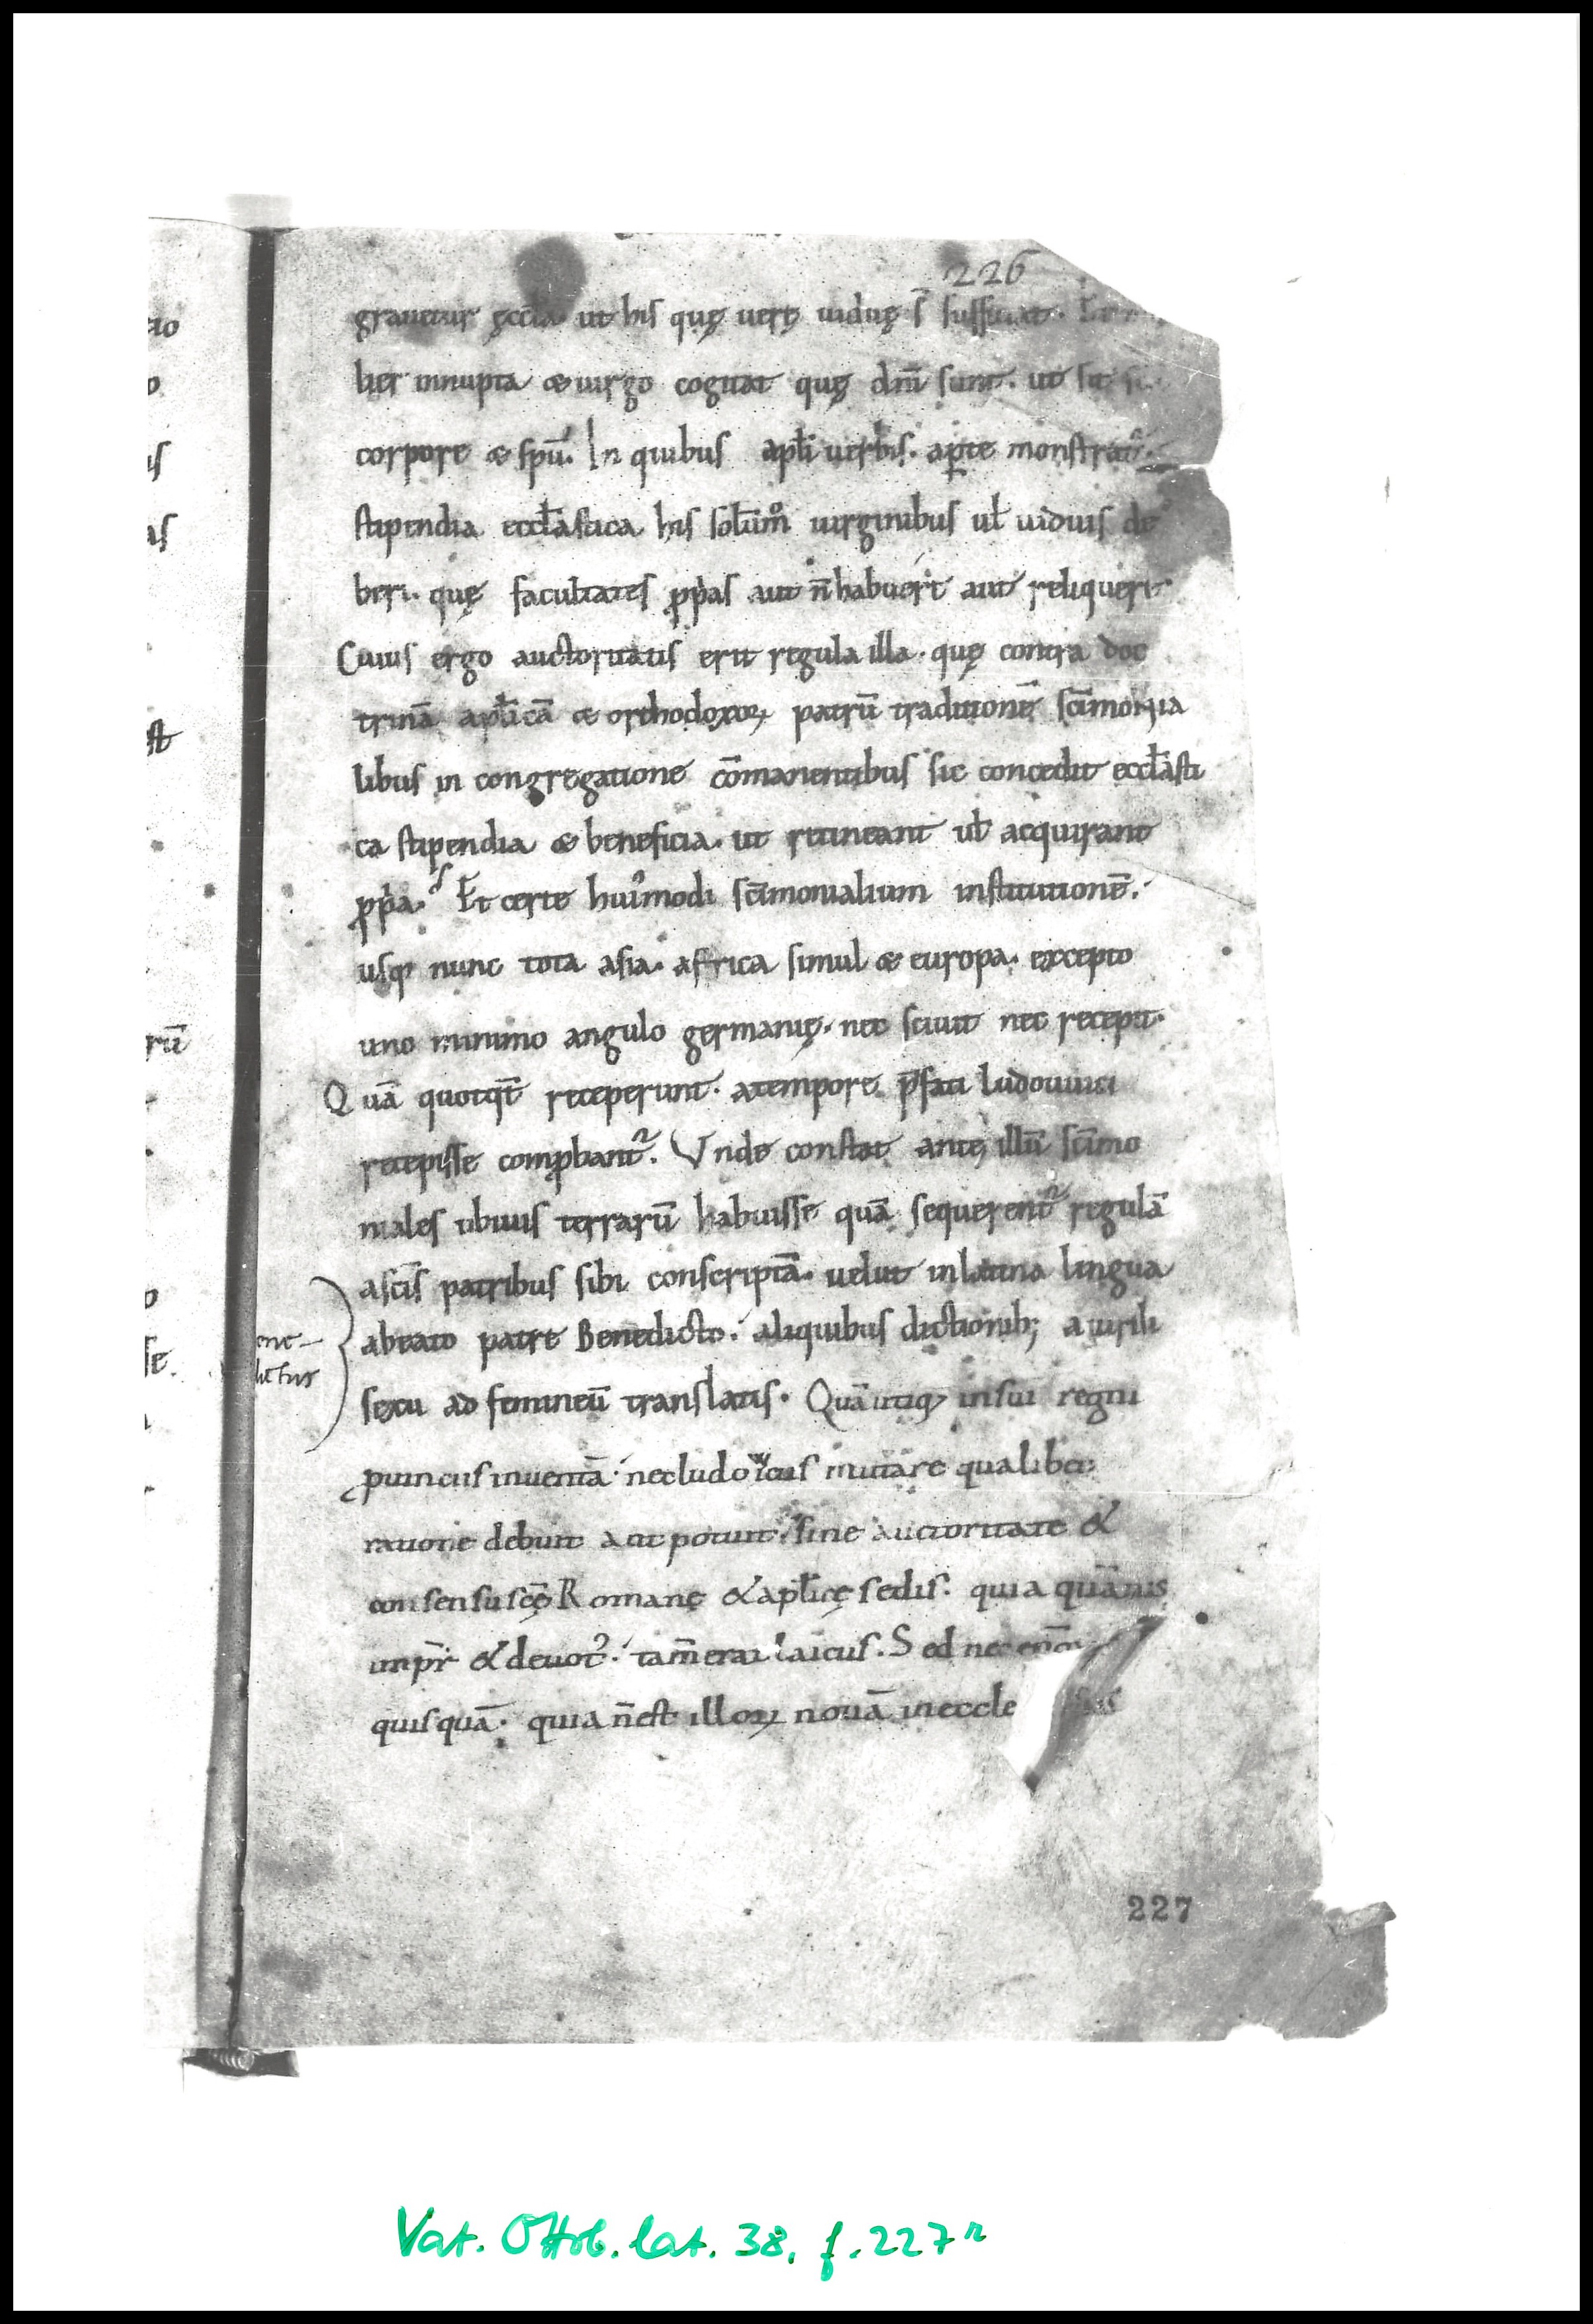 226
grauetur ęccła. ut his quę uerę uiduę s̄ sufficiat. Et
lier innupta & uirgo cogitat quę dn̄i sunt. ut sit
corpore & spū. In quibus apłi uerbis. aꝑte monstrat᷑.
stipendia eccłastica his solūm̊ uirginibus uł uiduis de
beri. quę facultates ꝓp̍as aut n̄ habuer̄t aut reliquer̄t.
Cuius ergo auctoritatis erit regula illa. quę contra doc
trinā apłicā & orthodoxoꝝ patrū traditionē sc̄imonia
libus in congregatione cōmanentibus sic concedit eccłasti
ca stipendia & beneficia. ut retineant uł acquirant
ꝓp̍a. Et certe hui᷒modi sc̄imonialium institutionē.
usqꝫ nunc tota asia. africa simul & europa. excepto
uno minimo angulo germanię. nec sciuit nec recepit.
Quā quotqt̄ receperunt. a tempore p̄fati ludouuici
recepisse comꝓbant᷑. Vnde constat ante illū sc̄imo
niales ubiuis terrarū habuisse quā sequerent᷑ regulā
a sc̄is patribus sibi conscriptā. uelut in latina lingua
a beato patre Benedicto. aliquibus dictionibꝫ a uirili
sexu ad femineū translatis. Quā utiqꝫ in sui regni
ene-
dictus
ꝓuinciis inuentā. nec ludouuicus mutare qualibet
ratione debuit aut potuit. sine auctoritate &
consensu sc̄ę Romanę & apłicę sedis. quia quāuis
imp̄r & deuot᷒. tam̄ erat laicus. Sed nec
quisquā. quia n̄ est illoꝝ nouā in eccle
227
Vat. Ottob. lat. 38, f. 227r